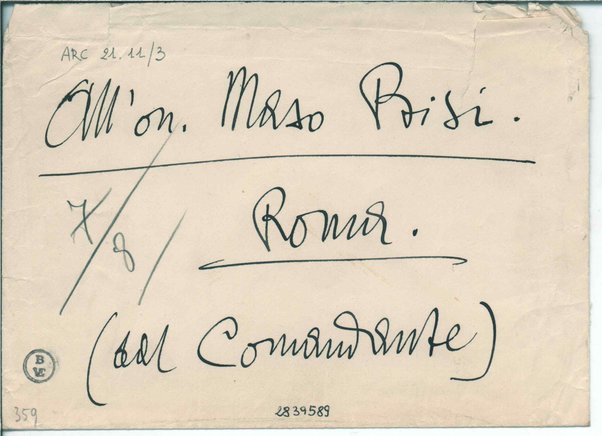 ARC 21.11/3
All'on. Maso Bisi.
7/8/
Roma.
(dal Comandante)
B
VE
359
2839589